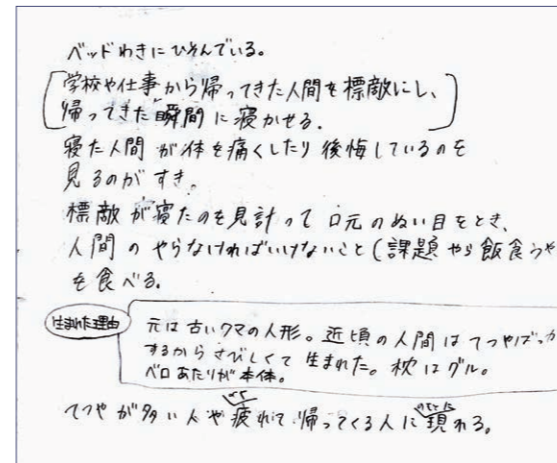 ベッドわきにひそんでいる。
学校や仕事から帰ってきた人間を標敵にし、
帰ってきた瞬間に寝かせる.
寝た人間が体を痛くしたり後悔しているのを
見るのがすき。
標敵が寝たのを見計って口元のぬい目をとき、
人間のやらなければいけないこと(課題やら飯食うや
を食べる。
生まれた理由
元は古いクマの人形。近頃の人間はてつやばっか
するからさびしくて生まれた。枕はグル。
ベロあたりが本体。
てつやが多い人や疲れて帰ってくる人に現れる。